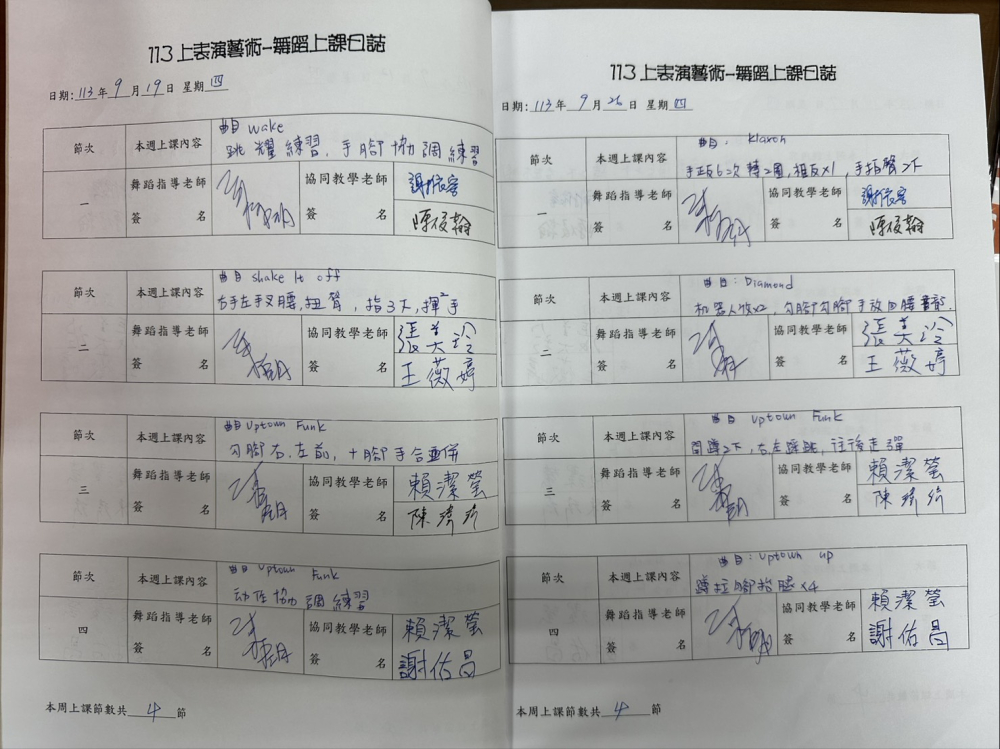 113上表演藝術-舞蹈上課日誌
日期: 113 年 9 月 19 日 星期 四
節次 本週上課內容 曲目 Wake
跳耀練習, 手腳協調練習
一 舞蹈指導老師簽名 協同教學老師簽名
陳俊翰
節次 本週上課內容 曲目 shake It off
右手左手叉腰, 扭臀, 指3下, 揮2手
二 舞蹈指導老師簽名 協同教學老師簽名 張美玲
王薇婷
節次 本週上課內容 曲目 Uptown Funk
勾腳右, 左前, 十腳手合
三 舞蹈指導老師簽名 協同教學老師簽名 賴潔瑩
陳
節次 本週上課內容 曲目 Uptown Funk
动作協調練習
四 舞蹈指導老師簽名 協同教學老師簽名 賴潔瑩
謝佑昌
本周上課節數共 4 節
113上表演藝術-舞蹈上課日誌
日期: 113 年 9 月 26 日 星期 四
節次 本週上課內容 曲目: Klaxon
6次轉2圈, 相反x1, 手指臀2下
一 舞蹈指導老師簽名 協同教學老師簽名
陳俊翰
節次 本週上課內容 曲目: Diamond
机器人 x2, 勾腳勾腳手放回腰
二 舞蹈指導老師簽名 協同教學老師簽名 張美玲
王薇婷
節次 本週上課內容 曲目 Uptown Funk
蹲2下, 右左跳, 往後走彈
三 舞蹈指導老師簽名 協同教學老師簽名 賴潔瑩
陳
節次 本週上課內容 曲目: Uptown up
蹲拉腳抬腿x4
四 舞蹈指導老師簽名 協同教學老師簽名 賴潔瑩
謝佑昌
本周上課節數共 4 節